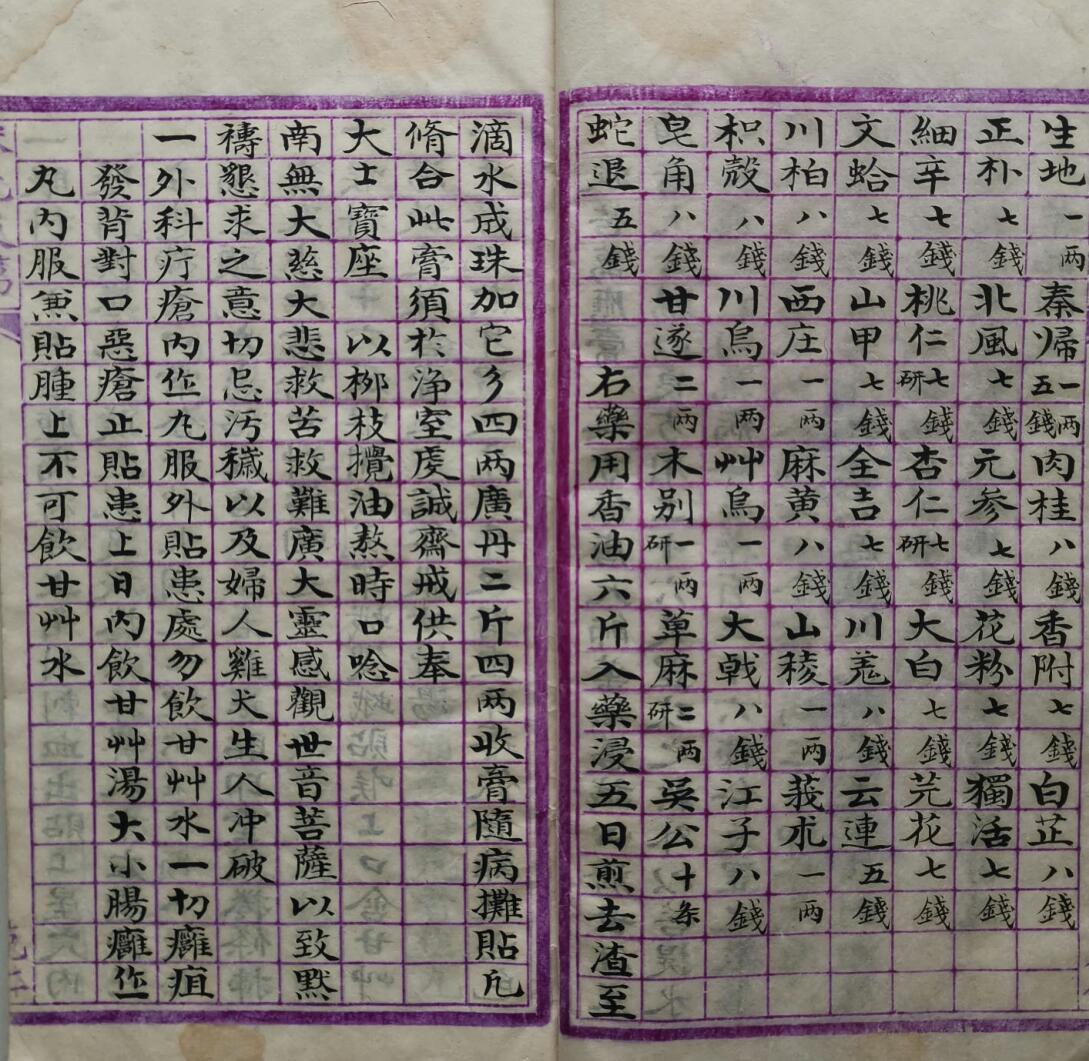 生地一両秦歸一両五錢肉桂八錢香附七錢白芷八錢
正朴七錢北風七錢元参七錢花粉七錢獨活七錢
細辛七錢桃仁研七錢杏仁研七錢大白七錢芫花七錢
文蛤七錢山甲七錢全吉七錢川羗八錢云連五錢
川柏八錢西庄一両麻黄八錢山稜一両莪朮一両
枳殼八錢川烏一両艸烏一両大戟八錢江子八錢
皂角八錢甘遂二両木别研一両萆麻研二両吳公十条
蛇退五錢右藥用香油六斤入藥浸五日煎去渣至
滴水成珠加它彡四両廣丹二斤四两收膏隨病攤貼凢
脩合此膏須於浄室虔誠齋戒供奉
大士寶座以柳枝攪油熬時口唸
南無大慈大悲救苦救難廣大靈感觀世音菩薩以致默
禱懇求之意切忌汚穢以及婦人雞犬生人冲破
一外科疔瘡内作丸服外貼患處勿飲甘艸水一切癰疽
發背對口惡瘡止貼患上日内飲甘艸湯大小腸癰作
丸内服兼貼腫上不可飲甘艸水